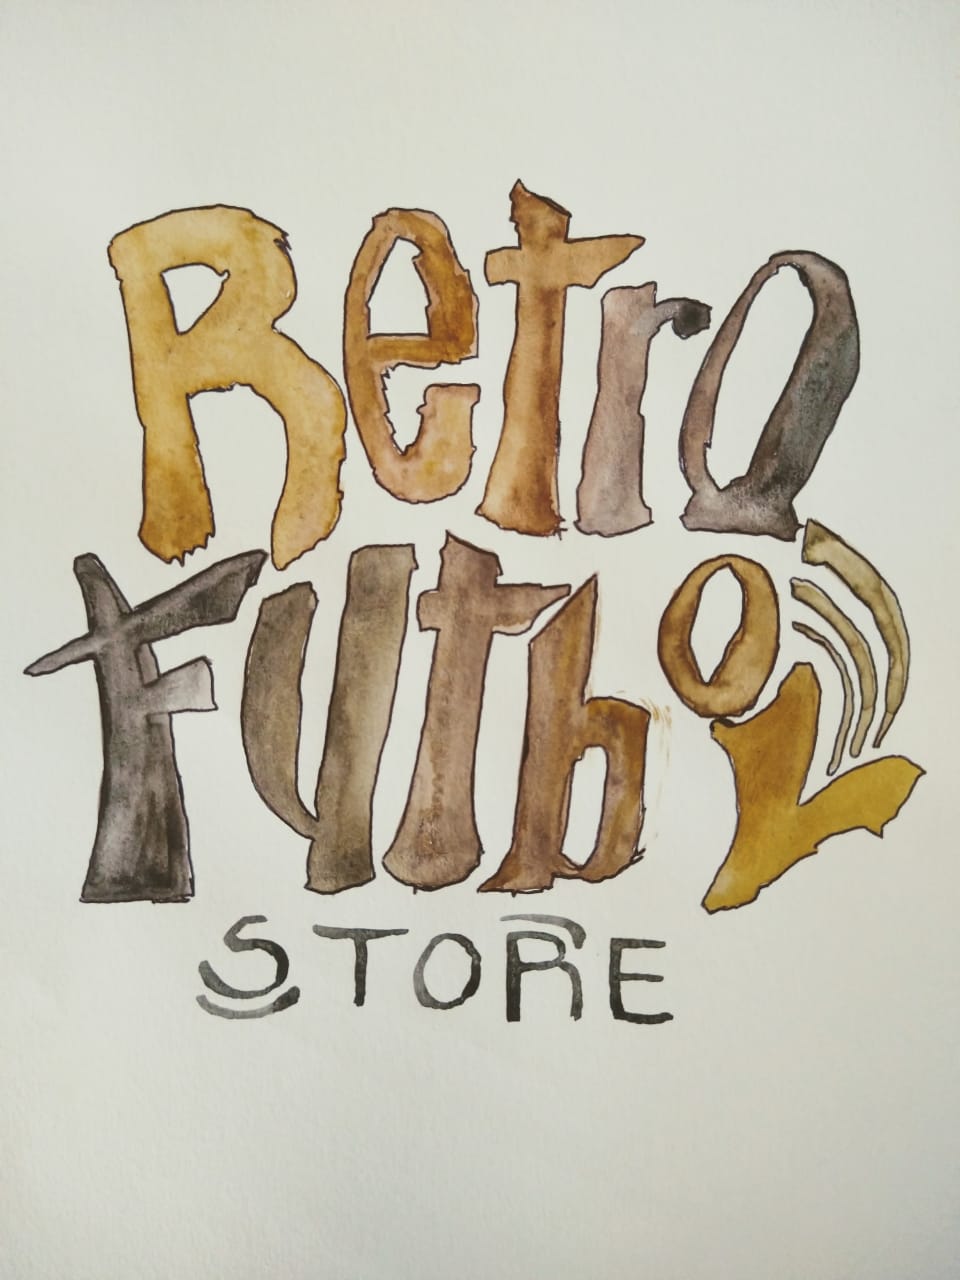 Retro
Futbol
STORE